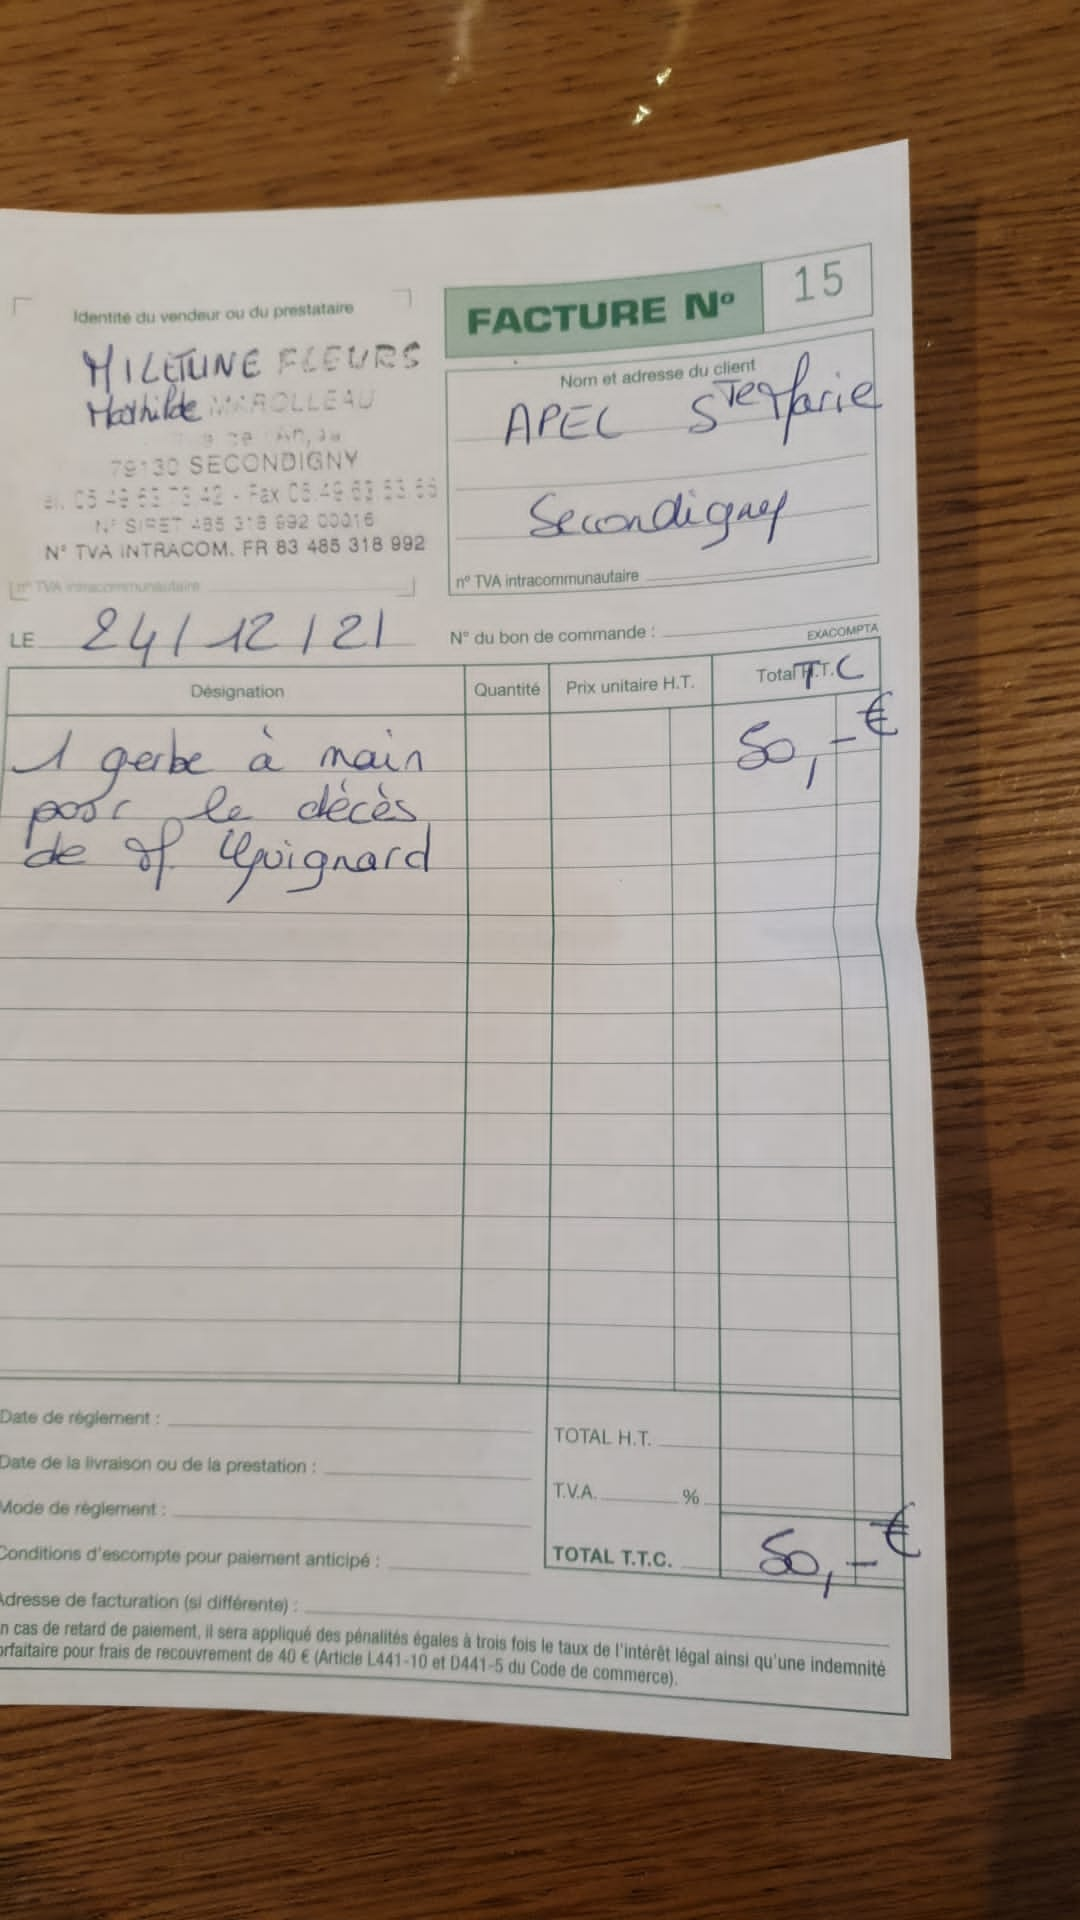 FACTURE Nº 15
Identité du vendeur ou du prestataire
FLEURS
Mathilde MAROLLEAU
79130 SECONDIGNY
N° SIRET 485 318 992 00016
N° TVA INTRACOM. FR 83 485 318 992
n° TVA intracommunautaire
Nom et adresse du client
APEL Ste Marie
Secondigny
n° TVA intracommunautaire
LE 24/12/21
N° du bon de commande :
EXACOMPTA
Désignation Quantité Prix unitaire H.T. Total T.T.C
1 gerbe à main 50,-€
pour le décès
de M. Guignard
Date de règlement :
TOTAL H.T.
Date de la livraison ou de la prestation :
T.V.A. %
Mode de règlement :
TOTAL T.T.C. 50,-€
Conditions d'escompte pour paiement anticipé :
Adresse de facturation (si différente) :
n cas de retard de paiement, il sera appliqué des pénalités égales à trois fois le taux de l'intérêt légal ainsi qu'une indemnité
orfaitaire pour frais de recouvrement de 40 € (Article L441-10 et D441-5 du Code de commerce).